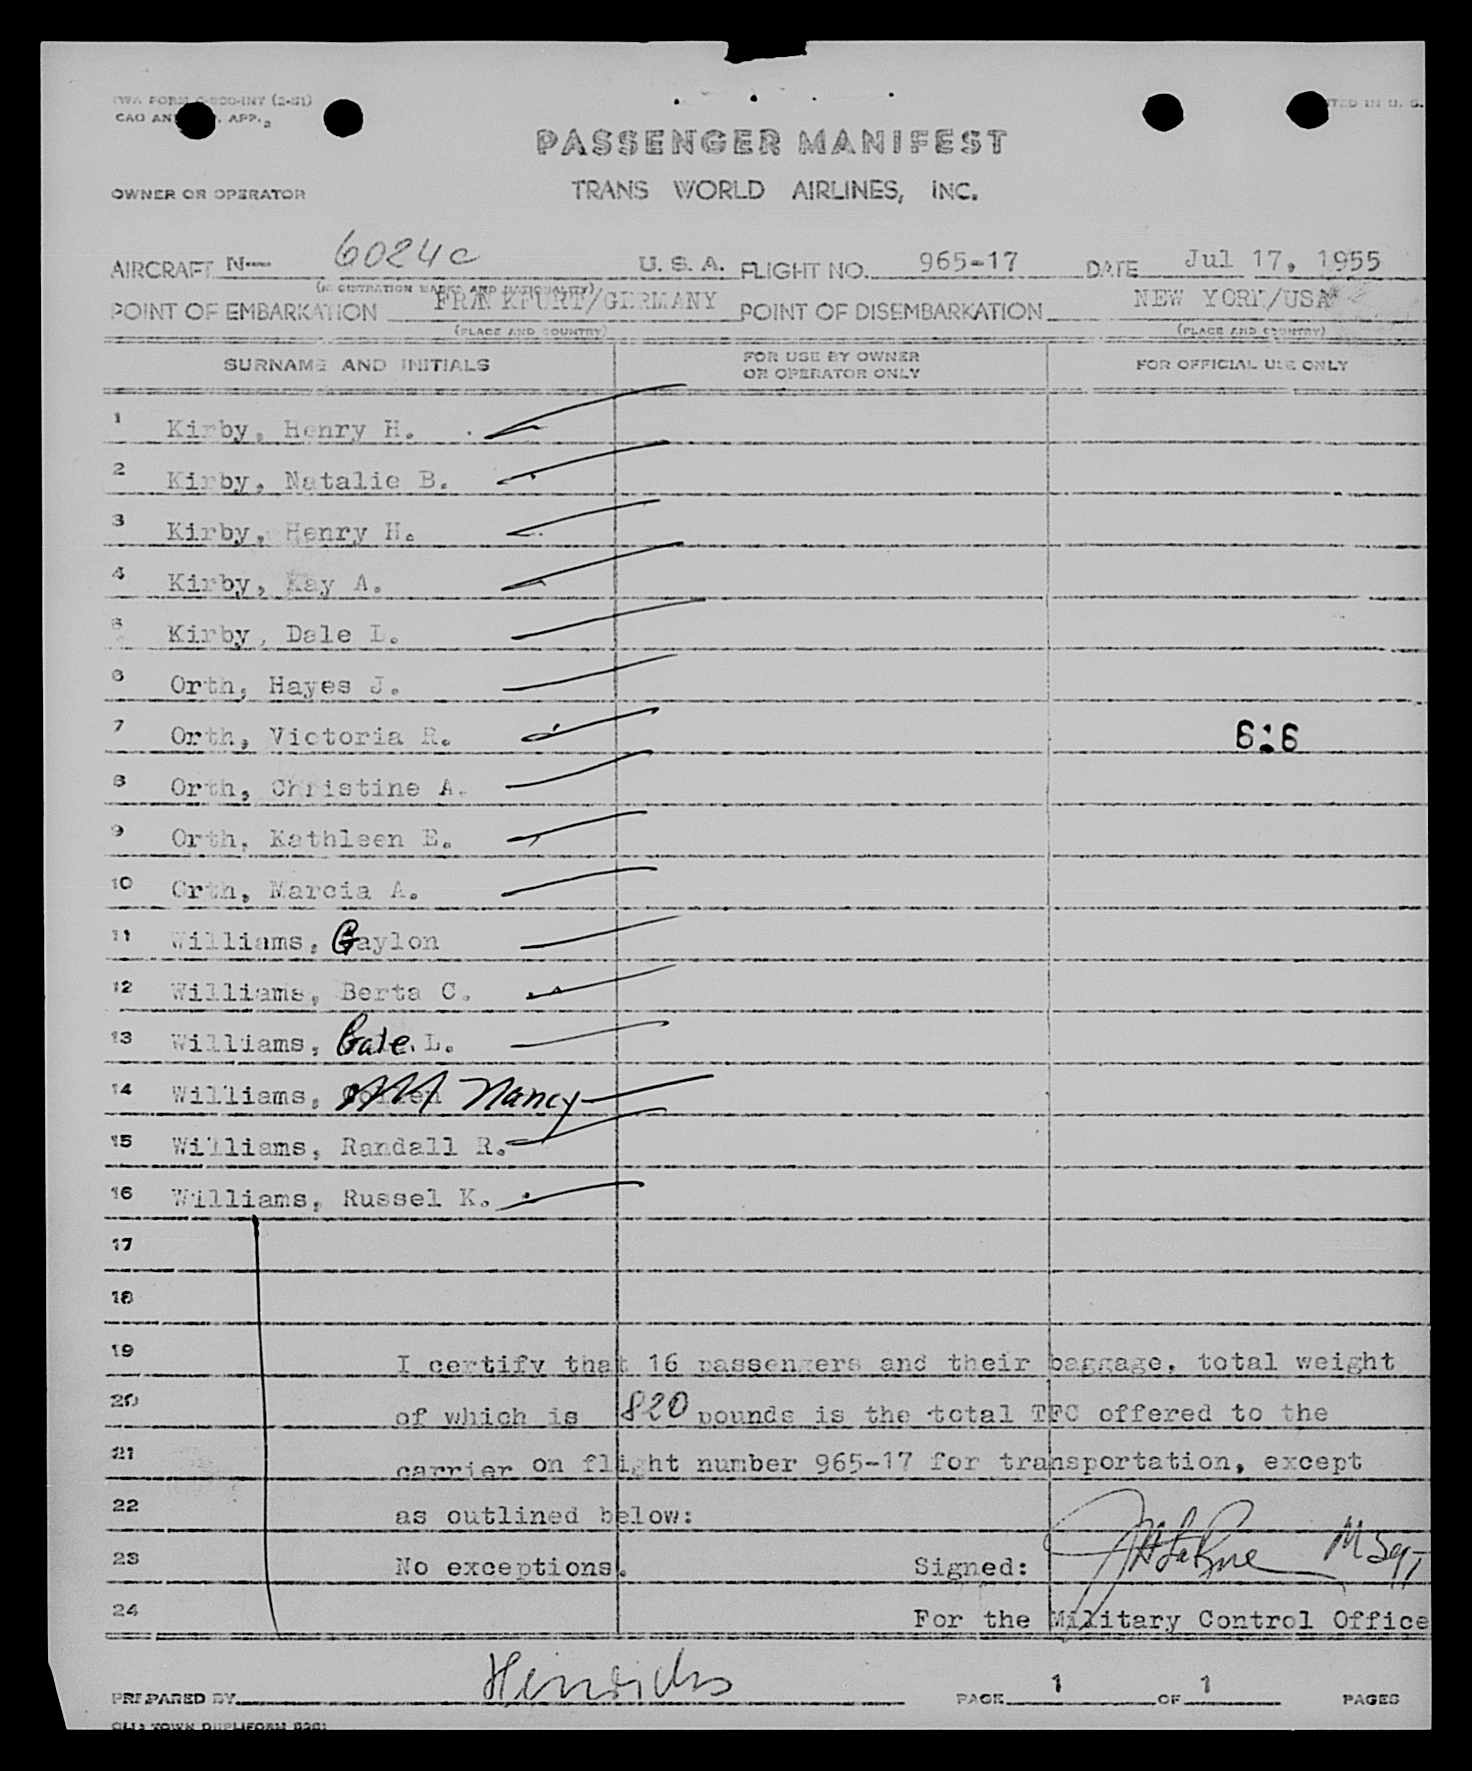 TWA FORM (2-51)
CAO AN APP. TED IN U. S.
PASSENGER MANIFEST
OWNER OR OPERATOR TRANS WORLD AIRLINES, INC.
AIRCRAFT N--- 6024C U. S. A. FLIGHT NO. 965-17 DATE Jul 17, 1955
(REGISTRATION MARKS AND NATIONALITY)
POINT OF EMBARKATION FRANKFURT/GERMANY POINT OF DISEMBARKATION NEW YORK/USA
(PLACE AND COUNTRY) (PLACE AND COUNTRY)
SURNAME AND INITIALS FOR USE BY OWNER OR OPERATOR ONLY FOR OFFICIAL USE ONLY
1 Kirby, Henry H.
2 Kirby, Natalie B.
3 Kirby, Henry H.
4 Kirby, Kay A.
5 Kirby, Dale L.
6 Orth, Hayes J.
7 Orth, Victoria R. 6:6
8 Orth, Christine A.
9 Orth, Kathleen E.
10 Orth, Marcia A.
11 Williams, Gaylon
12 Williams, Berta C.
13 Williams, Gale L.
14 Williams, Nancy
15 Williams, Randall R.
16 Williams, Russel K.
17
18
19 I certify that 16 passengers and their baggage, total weight
20 of which is 1820 pounds is the total TFC offered to the
21 carrier on flight number 965-17 for transportation, except
22 as outlined below:
23 No exceptions. Signed: MSgt
24 For the Military Control Office
PREPARED BY Hinrichs PAGE 1 OF 1 PAGES